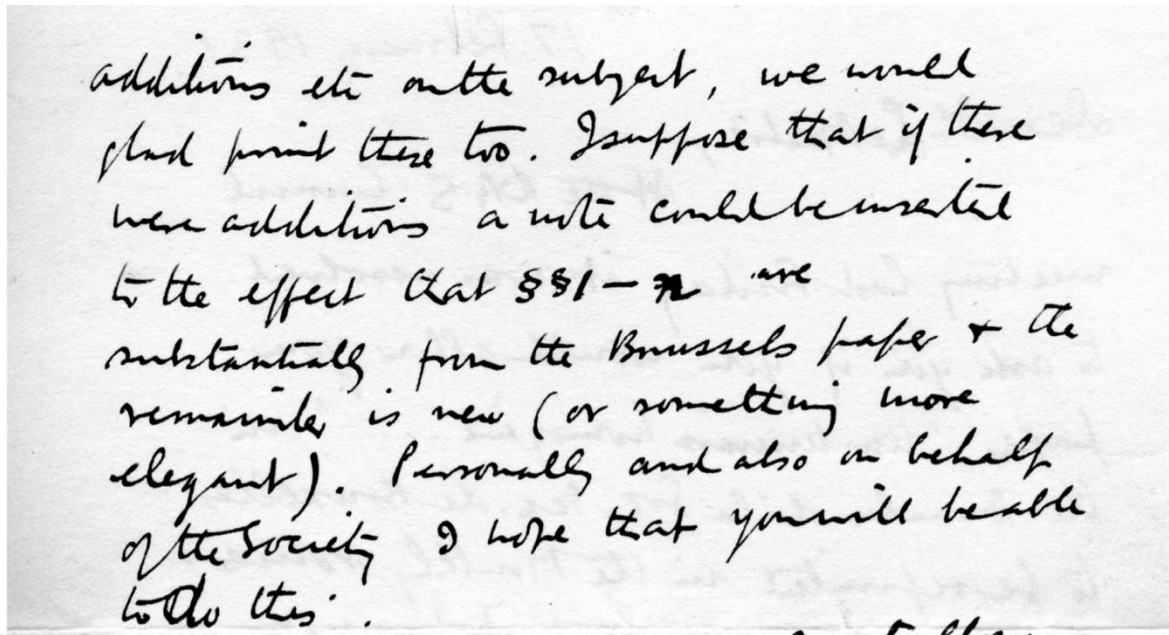 additions etc on the subject, we would
glad print these too. I suppose that if there
were additions a note could be inserted
to the effect that §§1 – n are
substantially from the Brussels paper + the
remainder is new (or something more
elegant). Personally and also on behalf
of the Society I hope that you will be able
to do this.